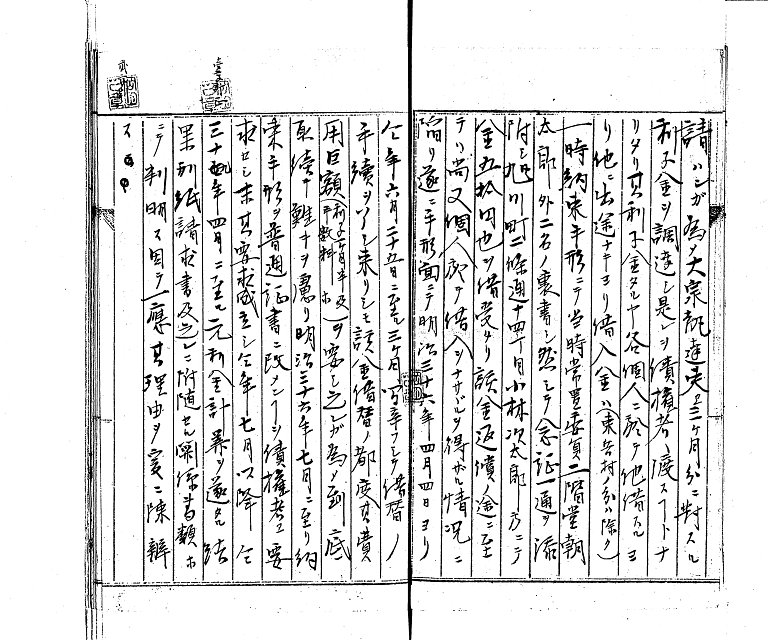 請ハンガ為メ大宗 達 三ヶ月分ニ対スル
利子金ヲ調達シ是レヲ債権者ヘ渡スコトナ
リタリ其利子金タルヤ各個人ニ於テ他借スルヨ
リ他ニ出途ナキヨリ借入金ハ(東 村ノ分ハ除ク)
一時約束手形ニテ当時常置委員二階堂朝
太郎外二名ノ裏書シ然シテ念証一通ヲ添
附シ旭川町二條通十四丁目小林次太郎方ニテ
金五拾円也ヲ借受タリ該金返償ノ途ニ至
テハ尚又個人ニ於テ借入ヲナサヾルヲ得ザル情況ニ
陥リ遂ニ手形面ニテ明治三十六年四月四日ヨリ
仝年六月二十五日ニ至ル三ヶ月間 フシテ借替ノ
手続ヲ シ来リシモ該金借替ノ都度其費
用巨額(利子 及手数料 ホ)ヲ要シ之レガ為メ到底
取続キ難キヲ慮リ明治三十六年七月ニ至リ約
束手形ヲ普通証書ニ改メン ヲシ債権者エ要
求セシニ其要求成立シ仝年七月以降仝
三十七年四月ニ至ル元利金計算ヲ遂タル結
果別紙請求書及之レニ附随セル関係書類ホ
ニテ判明ス因テ一應其理由ヲ爰ニ陳辯
ス